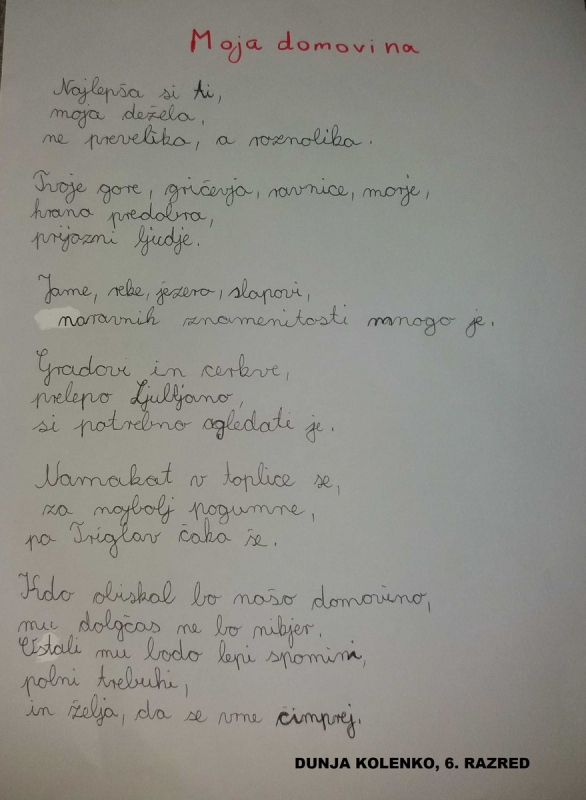 Moja domovina
Najlepša si ti,
moja dežela,
ne prevelika, a raznolika.
Tvoje gore, gričevja, ravnice, morje,
hrana predobra,
prijazni ljudje.
Jame, reke, jezera, slapovi,
naravnih znamenitosti mnogo je.
Gradovi in cerkve,
prelepo Ljubljano,
si potrebno ogledati je.
Namakat v toplice se,
za najbolj pogumne,
pa Triglav čaka še.
Kdo obiskal bo našo domovino,
mu dolgčas ne bo nikjer.
Ostali mu bodo lepi spomini,
polni trebuhi,
in želja, da se vrne čimprej.
DUNJA KOLENKO, 6. RAZRED